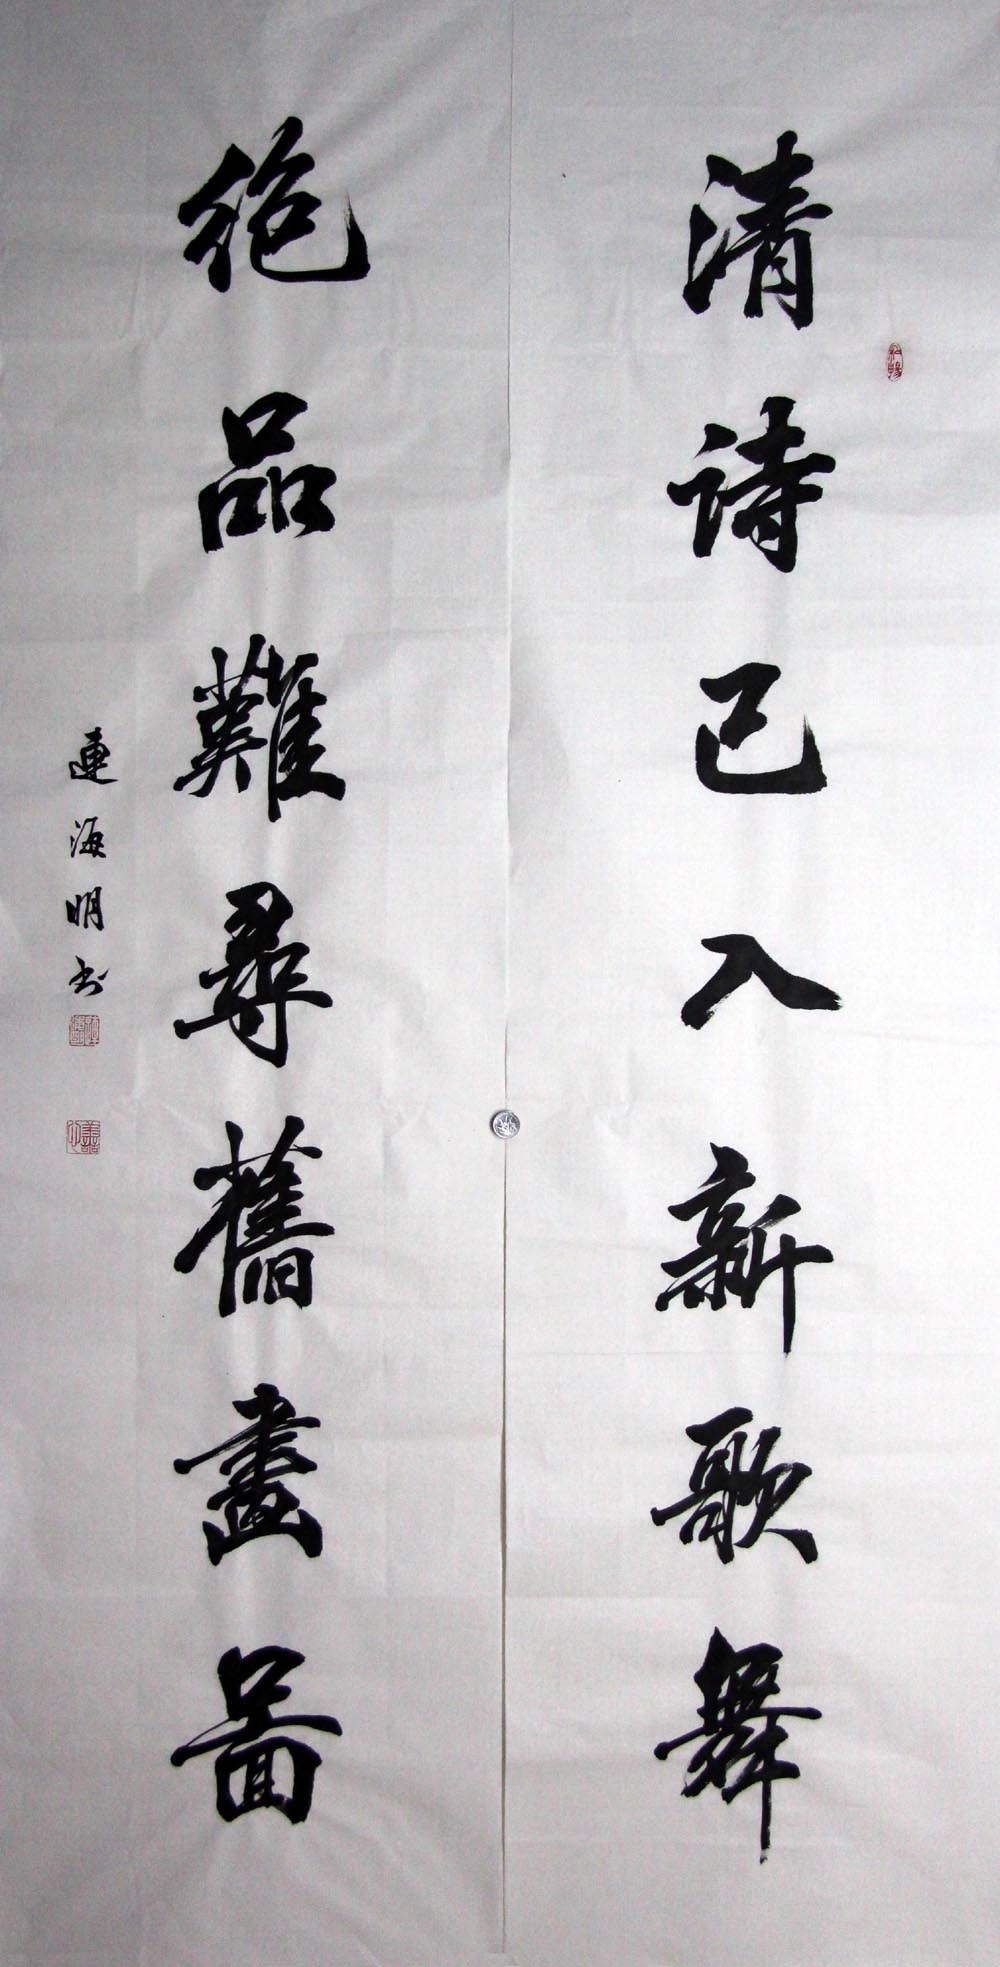 清诗已入新歌舞
绝品難尋舊畫啚
連海明书